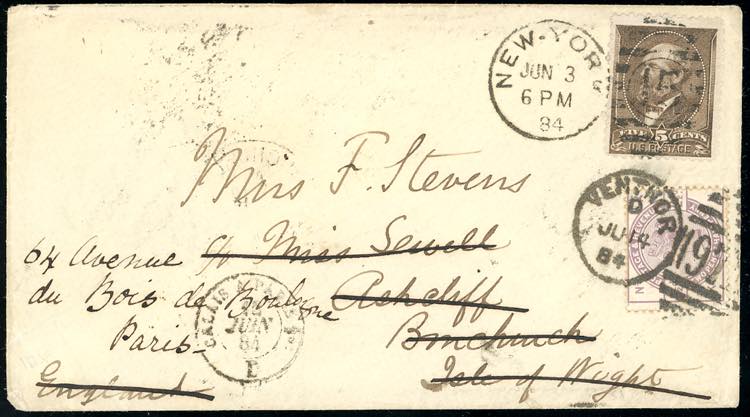 NEW-YORK
JUN 3
6 PM
84
15
FIVE 5 CENTS
U.S. POSTAGE
VENTNOR
D
JU 14
84
Miss F. Stevens
c/o Miss Sewell
Ashcliff
Bonchurch
Isle of Wight
England
64 Avenue
du Bois de Boulogne
Paris
CALAIS A PARIS
JUIN
84